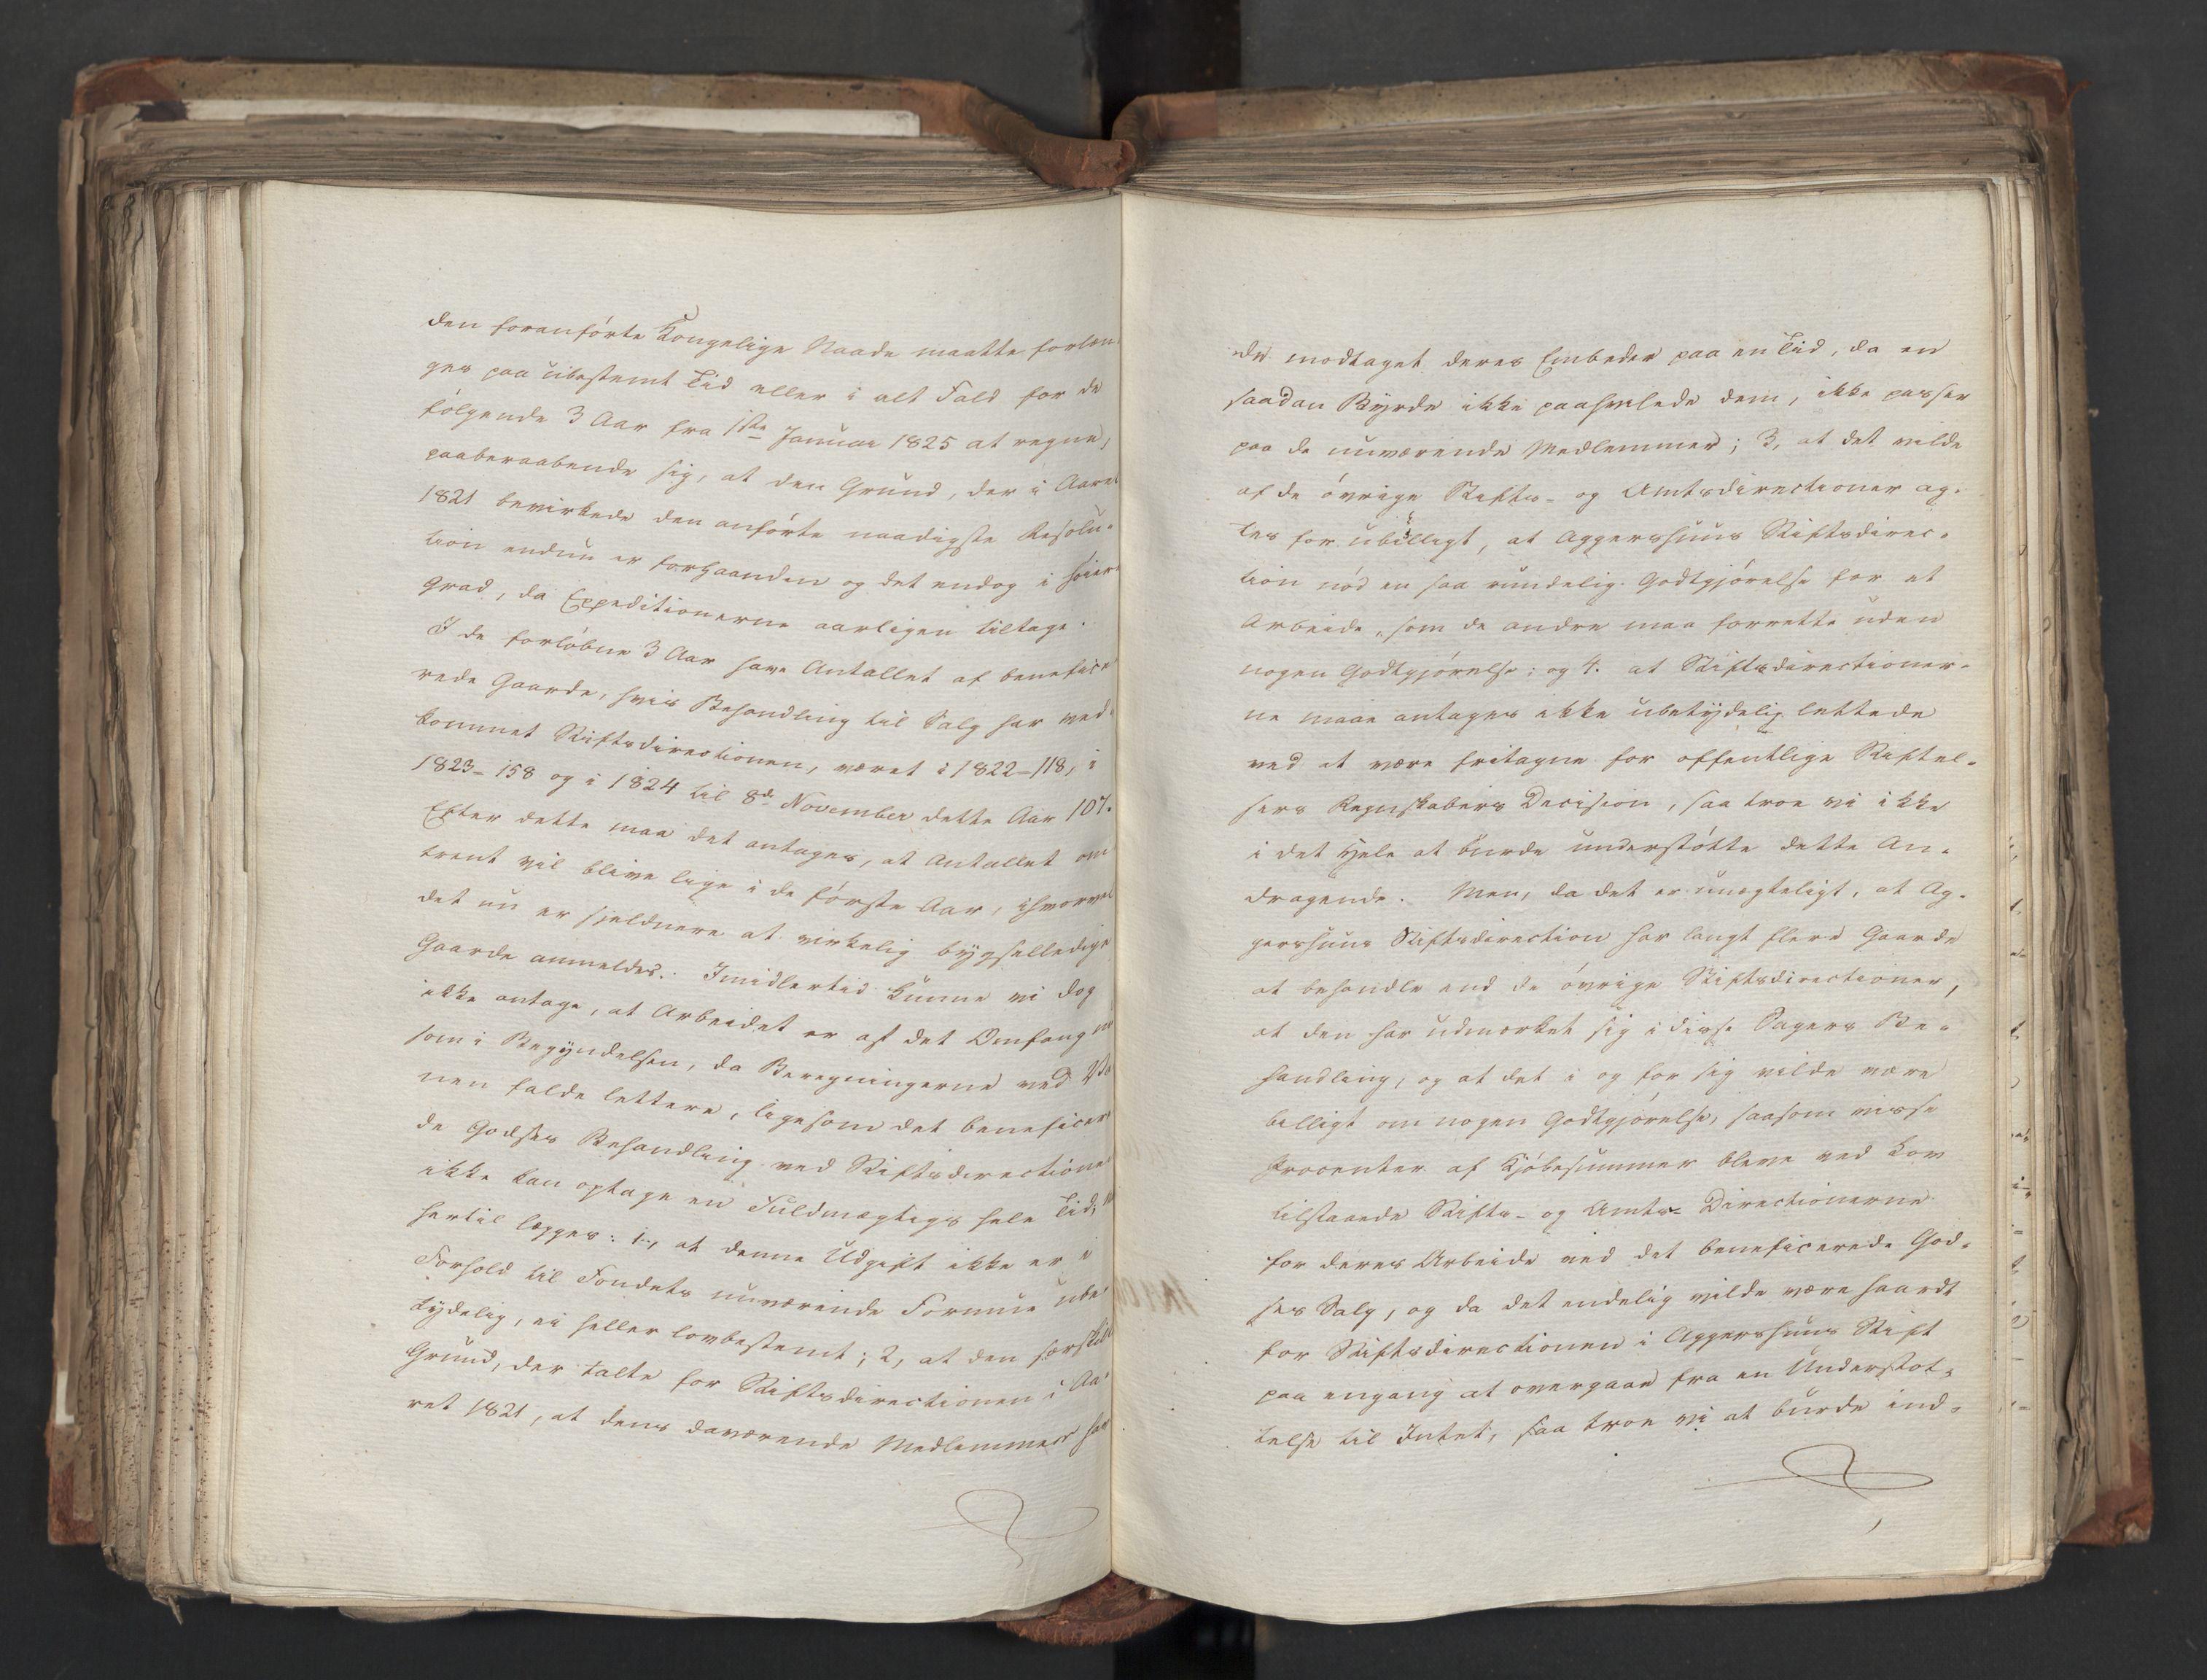 den foranførte Kongelige Naade maatte forlæn-
ges paa ubestemt Tid eller i alt Fald for de
følgende 3 Aar fra 1ste Januar 1825 at regne,
paaberaabende sig, at den Grund, der i Aaret
1821 bevirkede den anførte naadigste Resolu-
tion endnu er forhaanden og det endog i høiere
Grad, da Expeditionerne aarligen tiltage.
I de forløbne 3 Aar have Antallet af benefice-
rede Gaarde, hvis Behandling til Salg har ved-
kommet Stiftsdirectionen, været i 1822-118, i
1823-158 og i 1824 til 8de November dette Aar 107.
Efter dette maa det antages, at Antallet om-
trent vil blive lige i de første Aar, ihvorvel
det nu er sjeldnere at virkelig bygselledige
Gaarde anmeldes. Imidlertid kunne vi dog
ikke antage, at Arbeidet er af det Omfang nu
som i Begyndelsen, da Beregningerne ved
nen falde lettere, ligesom det beneficere-
de Godses Behandling ved Stiftsdirectionen
ikke kan optage en Fuldmægtigs hele Tid,
hertil lægges: 1, at denne Udgift ikke er i
Forhold til Fondets nuværende Formue ube-
tydelig, ei heller lovbestemt; 2, at den særskilte
Grund, der talte for Stiftsdirectionen i Aa-
ret 1821, at dens daværende Medlemmer hav-
de modtaget deres Embeder paa en Tid, da en
saadan Byrde ikke paahvilede dem, ikke passer
paa de nuværende Medlemmer; 3, at det vilde
af de øvrige Stifts- og Amtsdirectioner ag-
tes for ubilligt, at Aggershuus Stiftsdirec-
tion nød en saa rundelig Godtgjørelse for et
Arbeide, som de andre maa forrette uden
nogen Godtgjørelse; og 4. at Stiftsdirectioner-
ne maae antages ikke ubetydelig lettede
ved at være fritagne for offentlige Stiftel-
sers Regnskabers Decision, saa troe vi ikke
i det Hele at burde understøtte dette An-
dragende. Men, da det er unægteligt, at Ag-
gershuus Stiftsdirection har langt flere Gaarde
at behandle end de øvrige Stiftsdirectioner,
at den har udmærket sig i disse Sagers Be-
handling, og at det i og for sig vilde være
billigt om nogen Godtgjørelse, saasom visse
Procenter af Kjøbesummer bleve ved Lov
tilstaaede Stifts- og Amts-Directionerne
for deres Arbeide ved det beneficerede God-
ses Salg, og da det endelig vilde være haardt
for Stiftsdirectionen i Aggershuus Stift
paa engang at overgaae fra en Understøt-
telse til Intet, saa troe vi at burde ind-